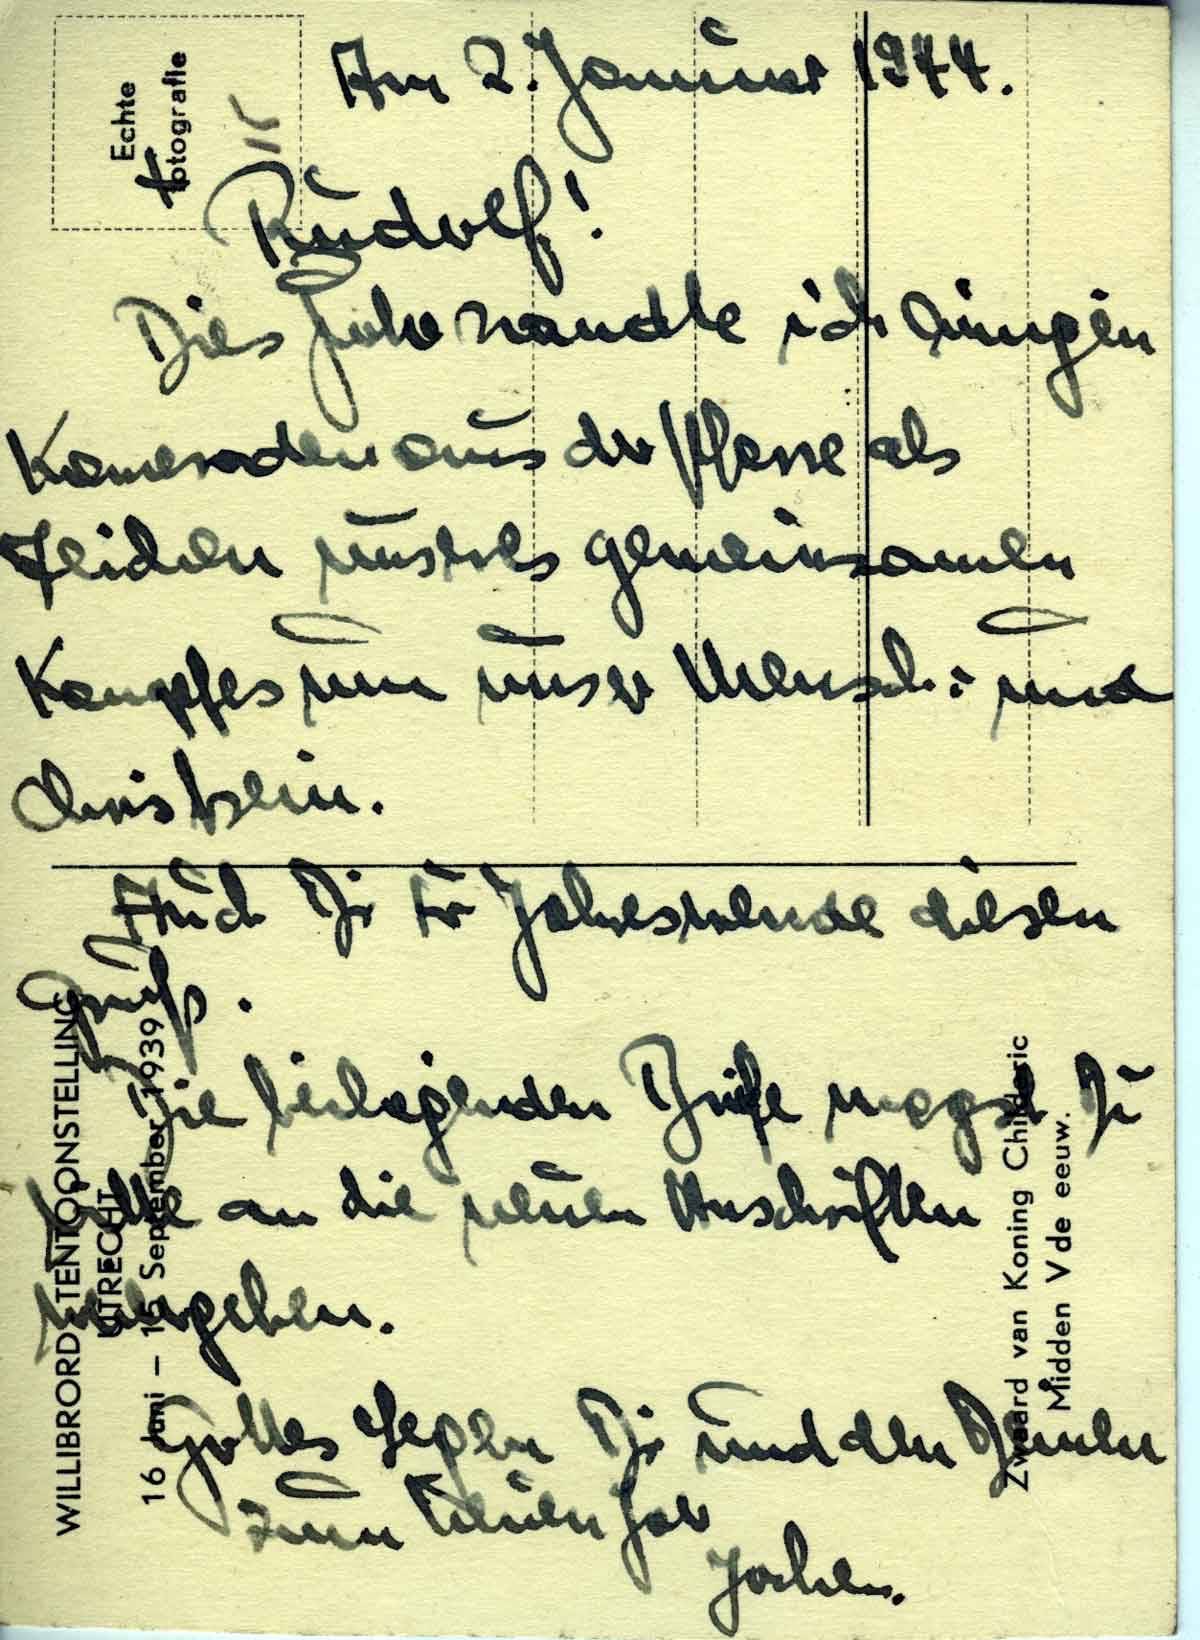 Echte
Fotografie
15
Am 2. Januar 1944.
Rudolf!
Dies Jahr sandte ich einigen
Kameraden aus der Masse als
Zeichen unseres gemeinsamen
Kampfes um unser Mensch- und
Christsein.
Auch Dir zur Jahreswende diesen
Gruß.
Die beiliegenden Briefe magst Du
bitte an die neuen Anschriften
weitergeben.
Gottes Segen Dir und den Deinen
zum neuen Jahr
Jochen.
WILLIBRORD TENTOONSTELLING
UTRECHT
16 Juni – 15 September 1939
Zwaard van Koning Childeric
Midden V de eeuw.